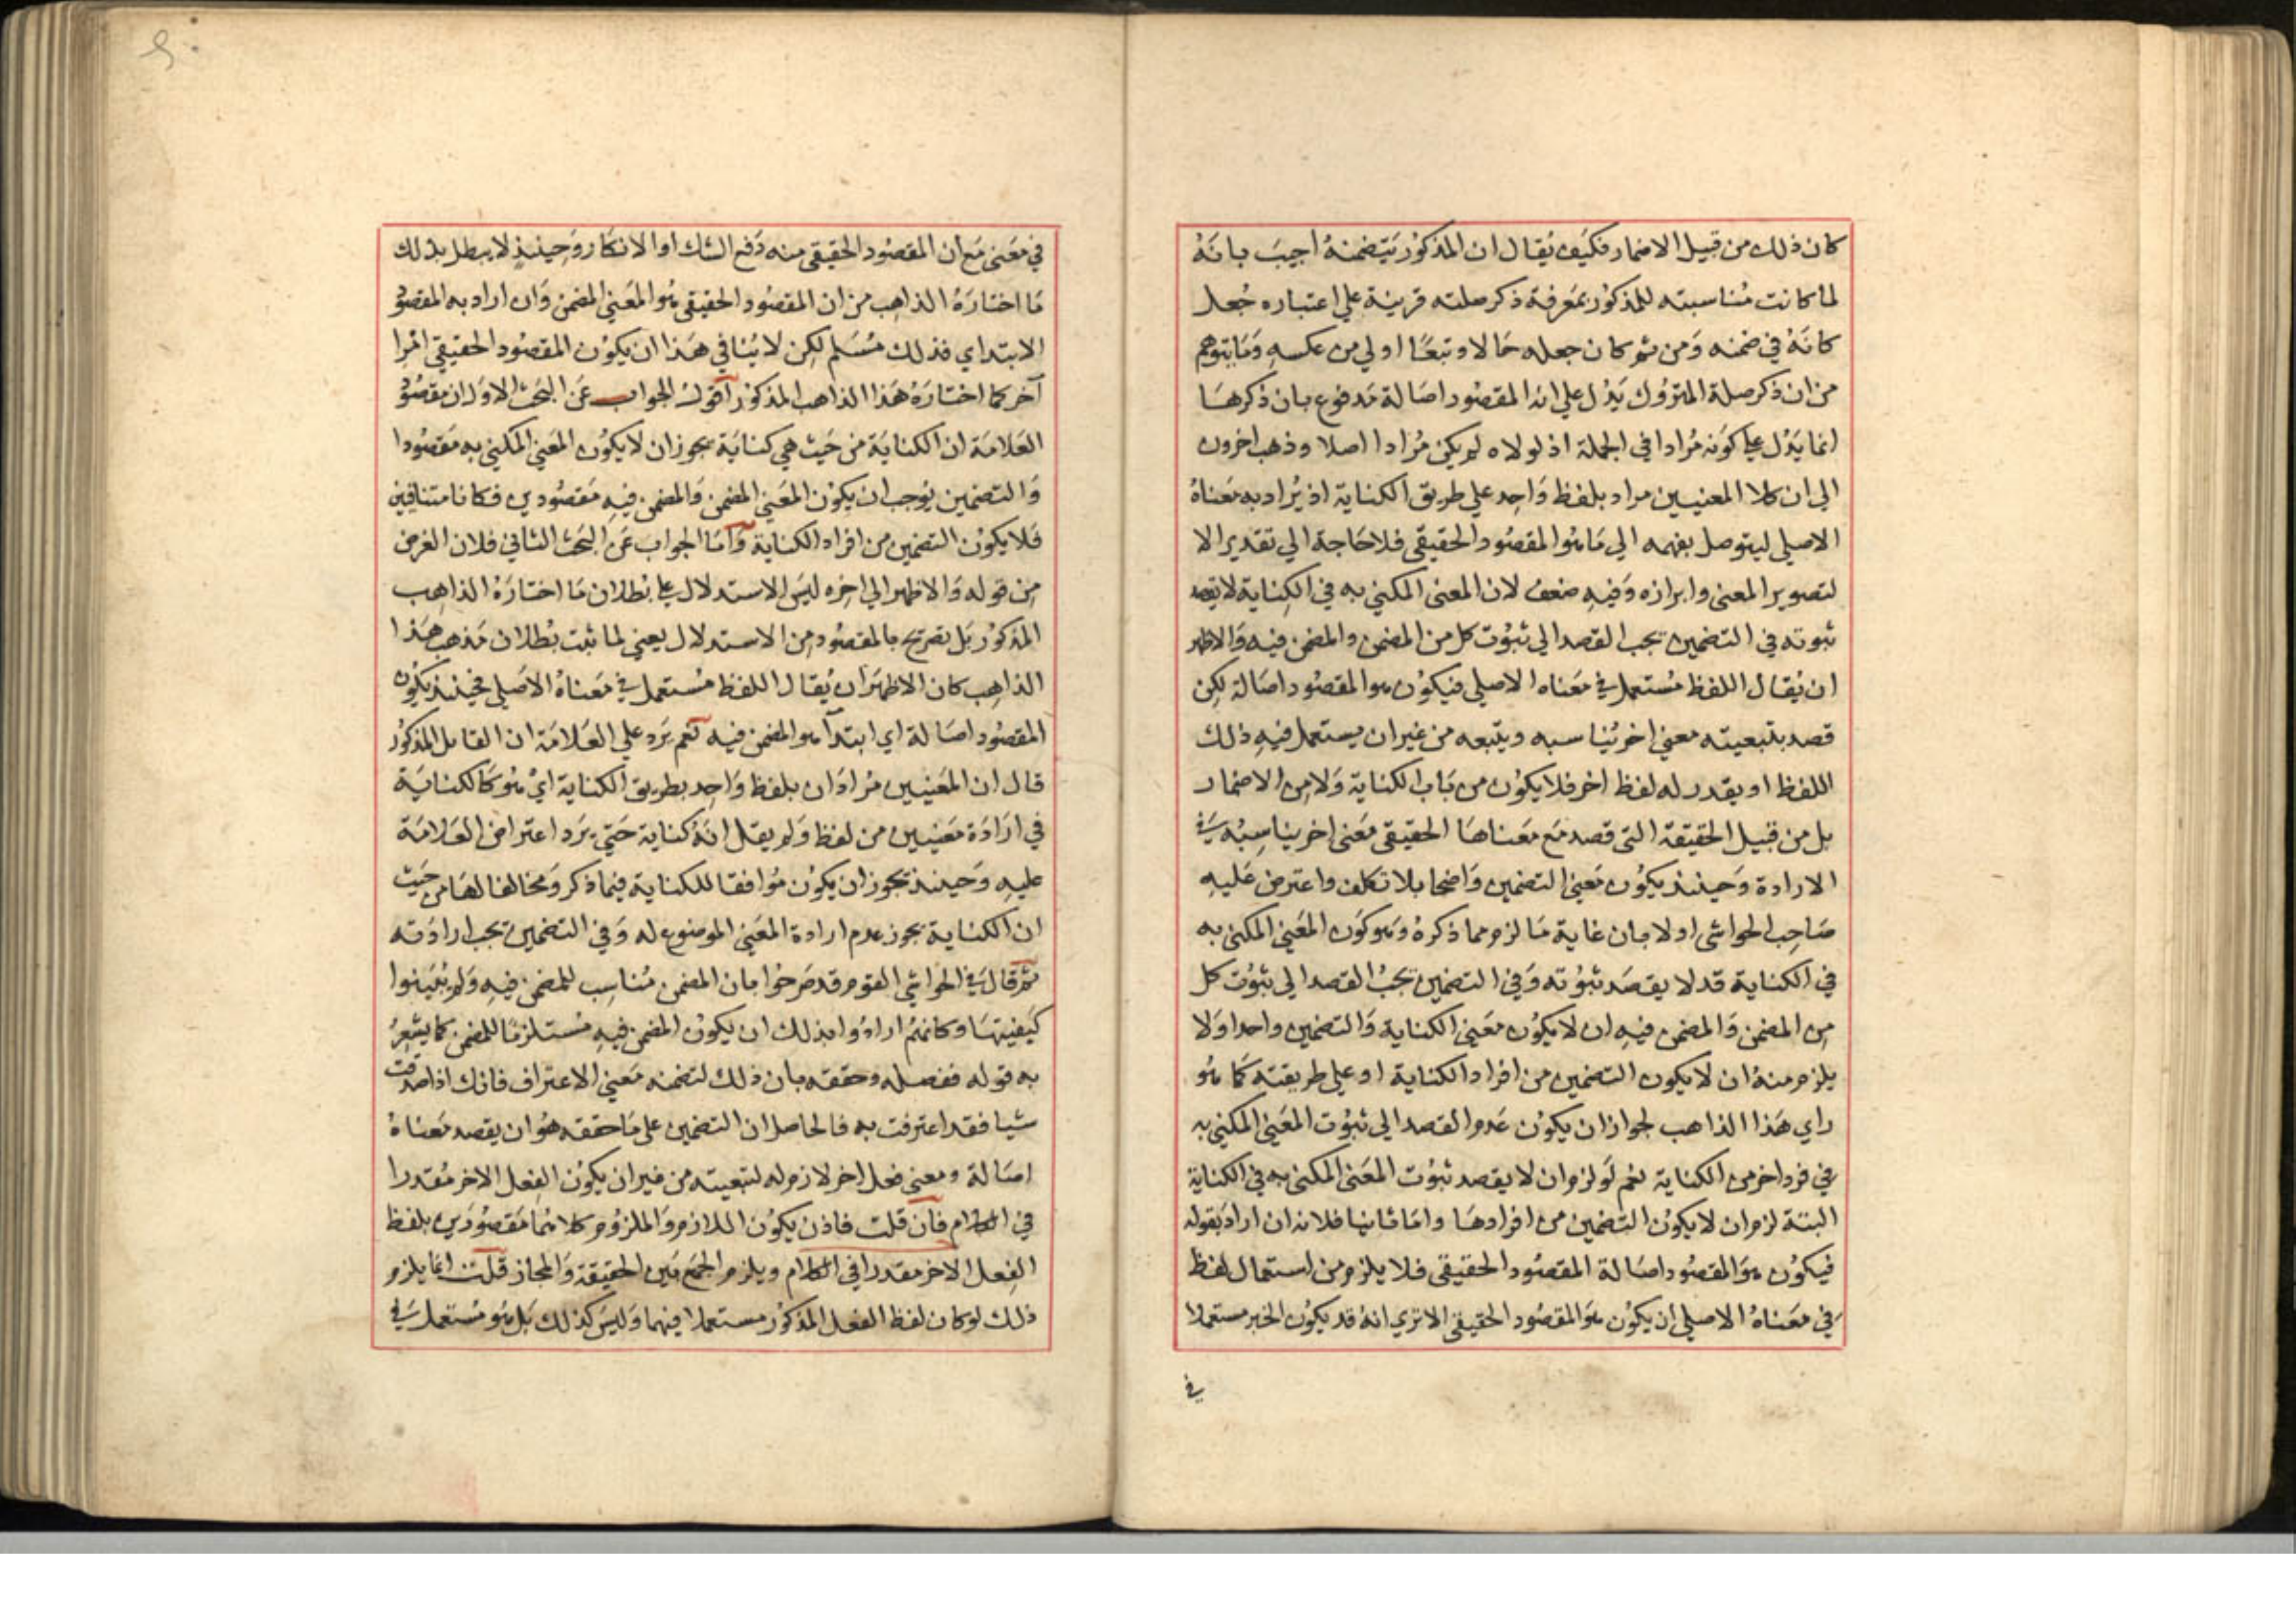 كان ذلك من قبيل الاضمار فكيف يُقال ان المذكور يتضمنهُ اجيبَ بانهُ
لما كانت مُناسبته للمذكور بمعرفة ذكر صلته قرينة علي اعتباره جُعل
كانهُ في ضمنه وَمن ثم كان جعله حَالا وتبعًا اولي من عكسه وَمَا يتوهم
من ان ذكر صلة المتروك يَدُل علي انه المقصود اصَالة مَدفوع بان ذكرهَا
انما يَدُل علي كونه مُرادا في الجملة اذ لولاه لم يكن مُرادا اصلا وذهب اخرون
الي ان كلا المعنيين مراد بلفظ وَاحِد علي طريق الكناية اذ يُراد به مَعناهُ
الاصلي ليتوصل بفهمه الي مَا هو المقصود الحقيقي فلا حَاجة الي تقدير الا
لتصوير المعني وابرازه وَفيهِ ضعف لان المعنى المكني به في الكِناية لا يقصد
ثبوته في التضمين يجب القصد الي ثبوت كل من المضمن والمضمن فيه وَالاظهر
ان يُقال اللفظ مُستعمل في مَعناه الاصلي فيكون هو المقصود اصَالة لكِن
قصد بتبعيته معني اخر يُناسبه ويتبعه من غير ان يستعمل فيهِ ذلك
اللفظ او يقدر له لفظ اخر فلا يكون من بَاب الكناية وَلا مِن الاضمار
بل من قبيل الحقيقة التي قصد مَع مَعناهَا الحقيقي مَعني اخر يناسِبُه في
الارادة وَحينئذ يكون مَعني التضمين وَاضحا بلا تكلف واعترض عَليهِ
صَاحِب الحواشي اولا بان غاية مَا لزم مما ذكرهُ وَهو كون المَعني المكني به
في الكناية قد لا يقصَد ثبُوته وَفي التضمين يجبُ القصد الي ثبوُت كل
مِن المضمن وَالمضمن فيهِ ان لا يكون مَعني الكناية وَالتضمين واحدا وَلا
يلزم منهُ ان لا يكون التضمين من افراد الكناية او علي طريقته كَمَا هُو
راي هَذا الذاهب لجواز ان يكون عَدم القصد الي ثبوُت المَعني المكني به
في فرد اخر من الكناية نعم لَو لزم ان لا يقصد ثبوُت المَعني المكني به في الكناية
البتة لزم ان لا يكون التضمين من افرادهَا وامَا ثانيا فلانه ان ارادَ بقوله
فيكون هوَ المقصود اصَالة المقصُود الحقيقي فلا يلزم من استعمال لفظ
في مَعناهُ الاصلي ان يكون هوَ المقصُود الحقيقي الا تري انهُ قد يكون الخبر مستعملا
في
في مَعني مَع ان المقصُود الحقيقي منه دَفع الشك او الانكار وَحينئذٍ لا يبطل بذلك
مَا اختارَهُ الذاهِب من ان المقصُود الحقيقي هُو المَعني المضمن وَان اراد به المقصُود
الابتداي فذلك مُسَلم لكِن لا يُنافي هَذا ان يكون المقصُود الحقيقي امرا
آخر كما اختارَهُ هَذا الذاهب المذكور اقول الجواب عَن البحَث الاوَل ان مقصُود
العَلامَة ان الكنايَة من حَيث هي كنايَة يجوز ان لا يكون المَعني المكني به مَقصُودا
وَالتضمين يُوجب ان يكون المَعني المضمن وَالمضمن فيهِ مَقصُودين فكانا متنافيين
فَلا يكون التضمين من افراد الكناية وَامَا الجواب عَن البحَث الثاني فلان الغرض
مِن قوله وَالاظهر الي اخره ليسَ الاستدلال علي بُطلان مَا اختارَهُ الذاهِب
المذكور بَل تصريح بالمقصُود من الاستدلال يعني لما ثبت بُطلان مَذهب هَذا
الذاهِب كان الاظهرَ ان يُقال اللفظ مُستعمل في مَعناهُ الاصَلي فحينئذ يكون
المقصُود اصَالة اي ابتداء هو المضمن فيه نَعم يَرد علي العَلامَة ان القايل المذكور
قال ان المَعنيين مُرادَان بلفظ وَاحِد بطريق الكناية ايْ هُو كالكنايَة
في ارَادَة مَعنيين من لفظ وَلم يقل انهُ كناية حَتي يَرد اعتراض العَلامَة
عليهِ وَحينئذ يجوز ان يكون مُوافقا للكناية فيما ذكر وَمخالفا لهَا من حَيث
ان الكناية يجوز عدم ارادة المَعني الموضوع له وَفي التضمين يجب ارادَته
ثم قال في الحَواشي القوم قد صَرحُوا بان المضمن مُناسِب للمضمن فيهِ وَلم يُبَينوا
كيفيتهَا وكانهُم ارادُوا بذلك ان يكون المضمن فيهِ مُستلزمًا للمضمن كما يشعِرُ
به قوله ففصله وحققه بان ذلك لتضمنه مَعني الاعتراف فانك اذا صدقت
شيا فقد اعترفت به فالحاصل ان التضمين علي مَا حققه هُو ان يقصد مَعناهُ
اصَالة ومعني فعل اخر لازم له لتبعيته من غير ان يكون الفِعل الاخر مُقدرا
في الكلام فان قلت فاذن يكون اللازم وَالملزُوم كلاهُمَا مَقصُودَين بلفظ
الفِعل الاخر مقدرا في الكلام ويلزم الجَمع بَين الحَقيقة وَالمجاز قلت انما يلزم
ذلك لو كان لفظ الفعل المذكور مستعملا فيهما وَليسَ كذلك بَل هُو مُستعمل في